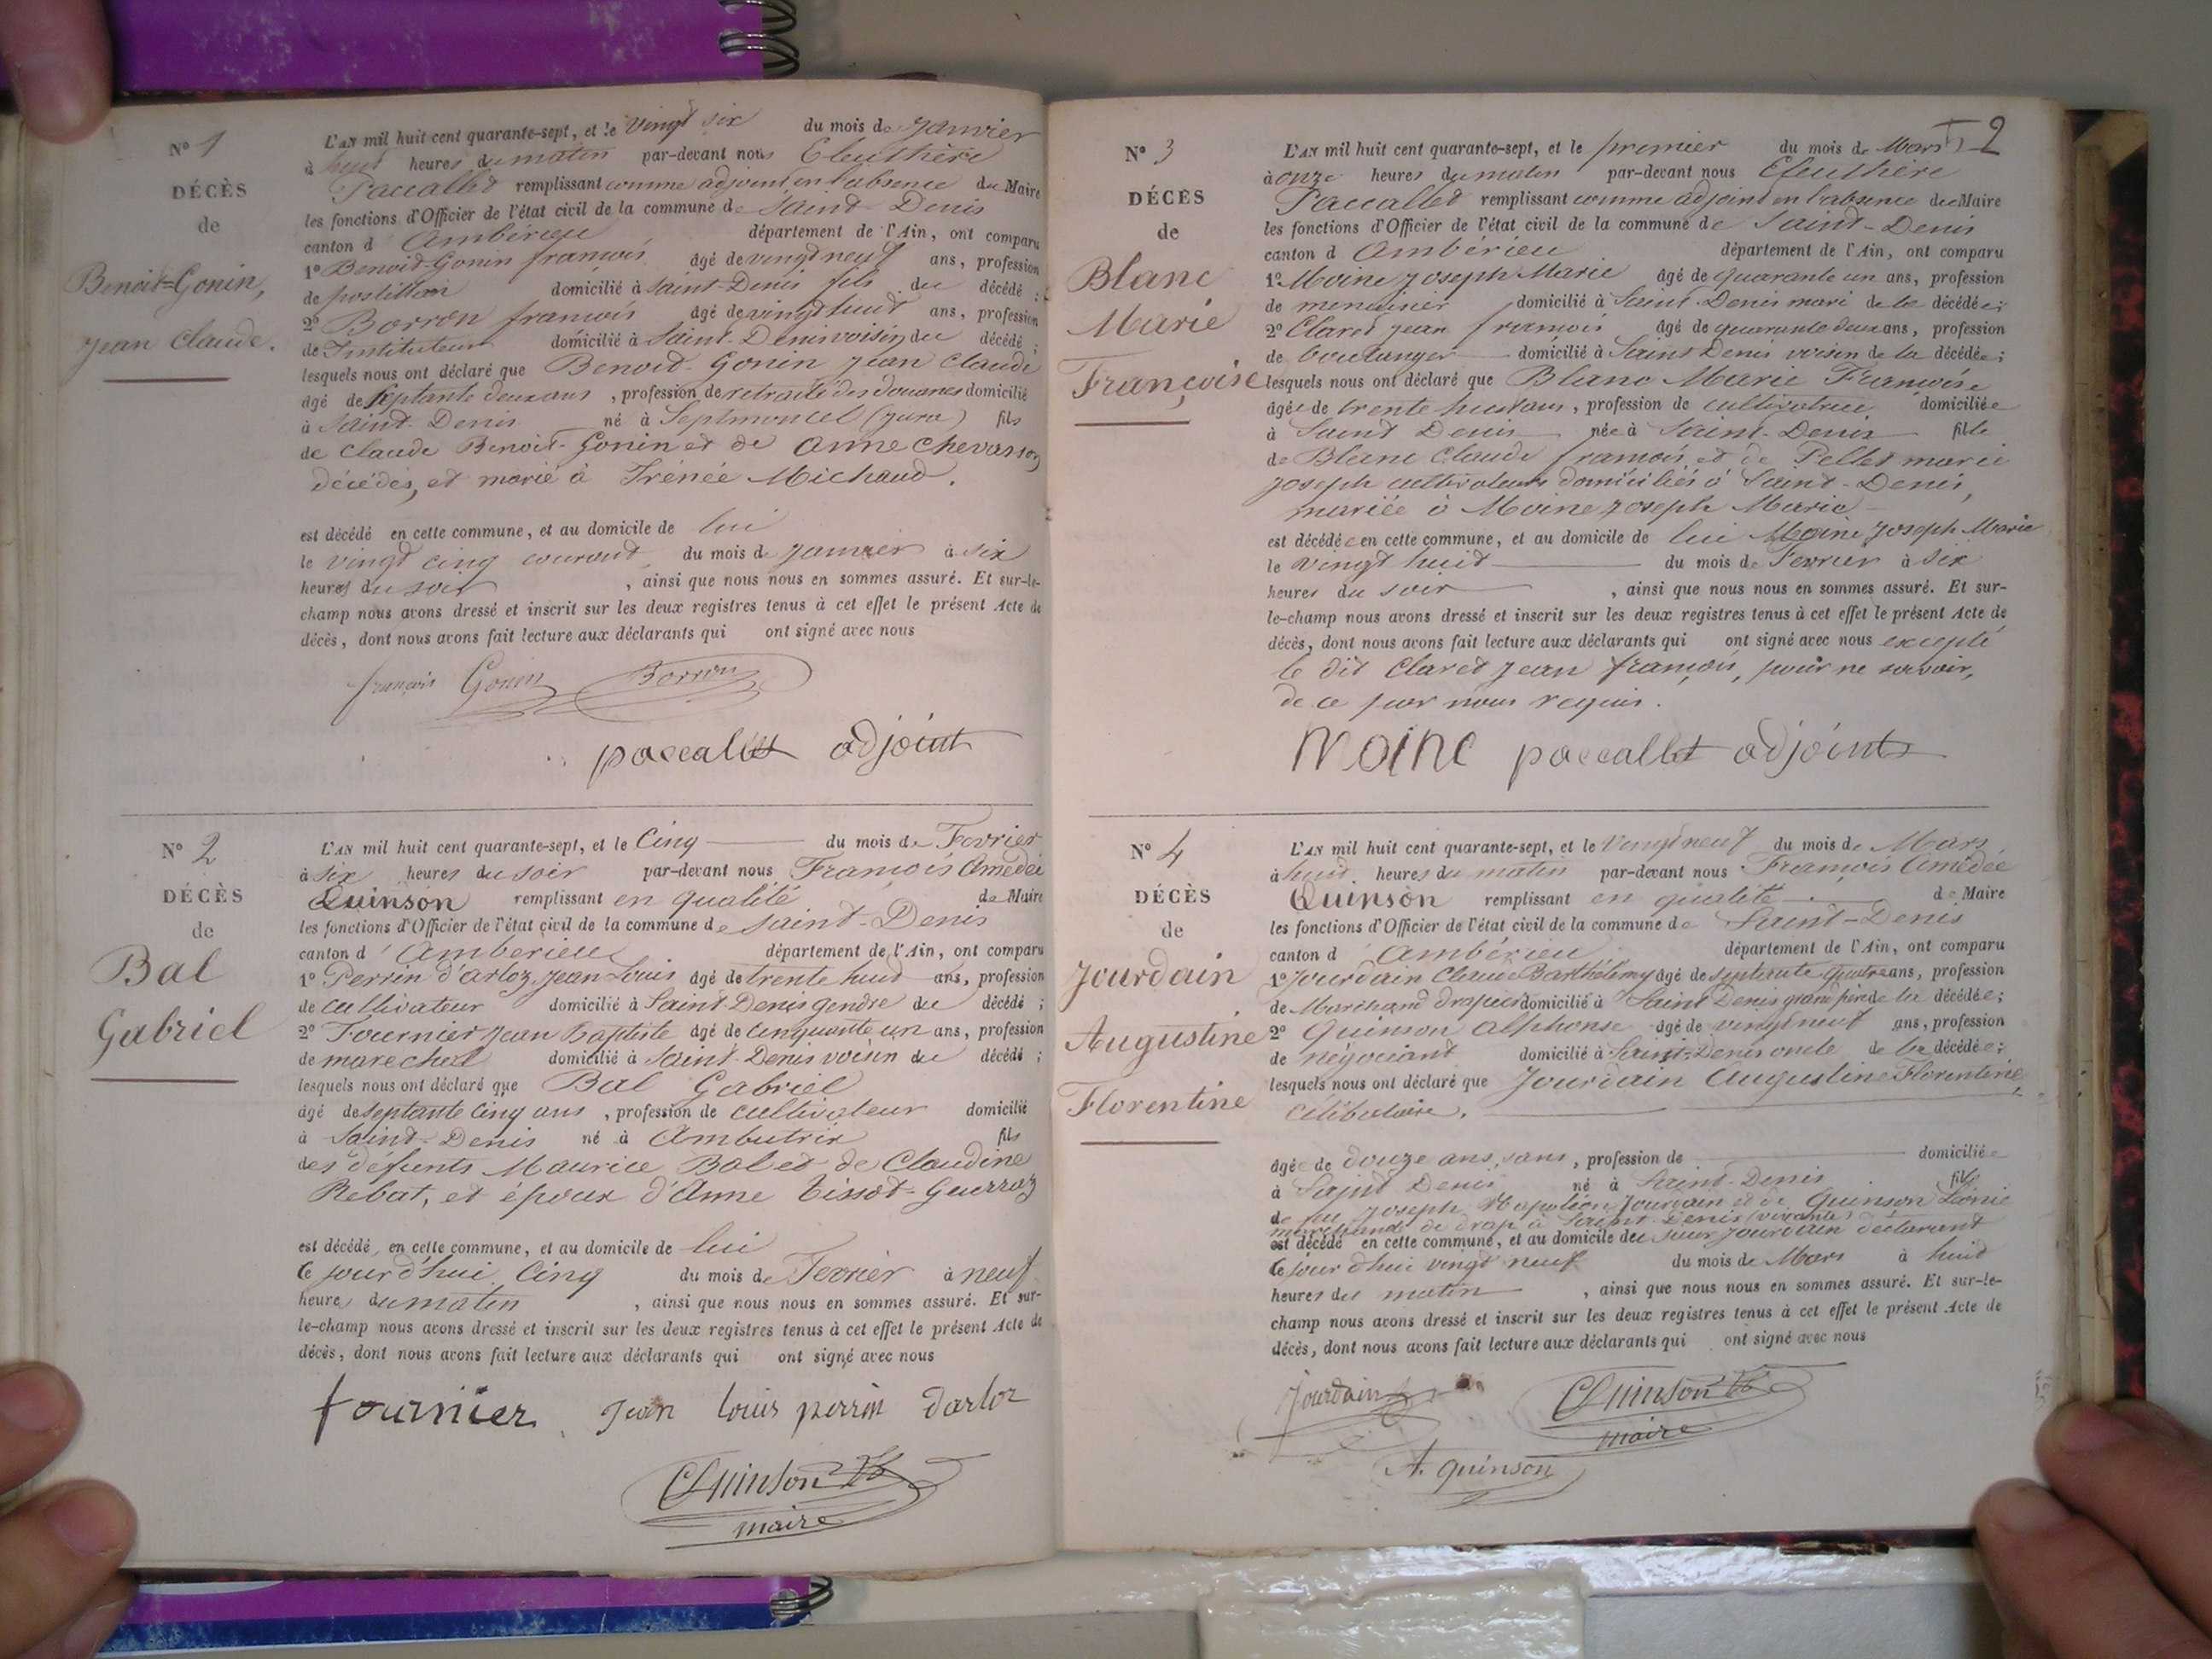 N° 1
DÉCÈS
de
Benoit-Gonin,
Jean Claude.
L'AN mil huit cent quarante-sept, et le vingt six du mois de Janvier
à huit heures du matin par-devant nous Eleuthère
Paccallet remplissant comme adjoint en l'absence du Maire
les fonctions d'Officier de l'état civil de la commune de Saint-Denis
canton d'Ambérieu département de l'Ain, ont comparu
1° Benoit-Gonin françois âgé de vingt neuf ans, profession
de postillon domicilié à Saint-Denis fils du décédé ;
2° Borron françois âgé de vingt huit ans, profession
de Instituteur domicilié à Saint-Denis voisin du décédé ;
lesquels nous ont déclaré que Benoit-Gonin Jean Claude
âgé de septante deux ans, profession de retraité des douanes domicilié
à Saint-Denis né à Septmoncel (Jura) fils
de Claude Benoit-Gonin et de Anne Chevassou
décédés, et marié à Irénée Michaud.
est décédé en cette commune, et au domicile de lui
le vingt cinq courant du mois de Janvier à six
heures du soir, ainsi que nous nous en sommes assuré. Et sur-le-
champ nous avons dressé et inscrit sur les deux registres tenus à cet effet le présent Acte de
décès, dont nous avons fait lecture aux déclarants qui ont signé avec nous
françois Gonin Borron
paccallet adjoint
N° 2
DÉCÈS
de
Bal
Gabriel
L'AN mil huit cent quarante-sept, et le Cinq du mois de Fevrier
à six heures du soir par-devant nous François Amédée
Quinson remplissant en qualité de Maire
les fonctions d'Officier de l'état civil de la commune de Saint-Denis
canton d'Amberieu département de l'Ain, ont comparu
1° Perrin d'arloz, Jean Louis âgé de trente huit ans, profession
de cultivateur domicilié à Saint-Denis gendre du décédé ;
2° Fournier Jean Baptiste âgé de cinquante un ans, profession
de marechal domicilié à Saint-Denis voisin du décédé ;
lesquels nous ont déclaré que Bal Gabriel
âgé de septante cinq ans, profession de cultivateur domicilié
à Saint-Denis né à Ambutrix fils
des défunts Maurice Bal et de Claudine
Rebat, et époux d'Anne Tissot-Guerraz
est décédé en cette commune, et au domicile de lui
ce jourd'hui cinq du mois de Fevrier à neuf
heures du matin, ainsi que nous nous en sommes assuré. Et sur-
le-champ nous avons dressé et inscrit sur les deux registres tenus à cet effet le présent Acte de
décès, dont nous avons fait lecture aux déclarants qui ont signé avec nous
fournier Jean louis perrin darloz
Quinson
maire
2
N° 3
DÉCÈS
de
Blanc
Marie
Françoise
L'AN mil huit cent quarante-sept, et le premier du mois de Mars
à onze heures du matin par-devant nous Eleuthère
Paccallet remplissant comme adjoint en l'absence du Maire
les fonctions d'Officier de l'état civil de la commune de Saint-Denis
canton d'Ambérieu département de l'Ain, ont comparu
1° Moine Joseph Marie âgé de quarante un ans, profession
de menuisier domicilié à Saint-Denis mari de la décédée ;
2° Claret Jean françois âgé de quarante deux ans, profession
de boulanger domicilié à Saint Denis voisin de la décédée ;
lesquels nous ont déclaré que Blanc Marie Françoise
âgée de trente huit ans, profession de cultivatrice domiciliée
à Saint Denis née à Saint-Denis fille
de Blanc Claude françois et de Pellet marie
Joseph cultivateurs domiciliés à Saint-Denis,
mariée à Moine Joseph Marie
est décédée en cette commune, et au domicile de lui Moine Joseph Marie
le vingt huit du mois de Fevrier à six
heures du soir, ainsi que nous nous en sommes assuré. Et sur-
le-champ nous avons dressé et inscrit sur les deux registres tenus à cet effet le présent Acte de
décès, dont nous avons fait lecture aux déclarants qui ont signé avec nous excepté
le dit Claret Jean françois, pour ne savoir,
de ce par nous requis.
Moine paccallet adjoint
N° 4
DÉCÈS
de
Jourdain
Augustine
Florentine
L'AN mil huit cent quarante-sept, et le vingt neuf du mois de Mars
à huit heures du matin par-devant nous François Amédée
Quinson remplissant en qualité de Maire
les fonctions d'Officier de l'état civil de la commune de Saint-Denis
canton d'Ambérieu département de l'Ain, ont comparu
1° Jourdain Claude Barthélemy âgé de septante quatre ans, profession
de Marchand drapier domicilié à Saint Denis grand père de la décédée ;
2° Quinson Alphonse âgé de vingt neuf ans, profession
de négociant domicilié à Saint-Denis oncle de la décédée ;
lesquels nous ont déclaré que Jourdain Augustine Florentine,
célibataire.
âgée de douze ans, sans, profession de domiciliée
à Saint Denis né à Saint-Denis fille
de feu Joseph Napoléon Jourdain et de Quinson Léonie
marchande de drap à Saint-Denis (vivante)
est décédé en cette commune, et au domicile du sieur Jourdain déclarant
ce jour d'hui vingt neuf du mois de Mars à huit
heures du matin, ainsi que nous nous en sommes assuré. Et sur-le-
champ nous avons dressé et inscrit sur les deux registres tenus à cet effet le présent Acte de
décès, dont nous avons fait lecture aux déclarants qui ont signé avec nous
Jourdain Quinson
maire
A. Quinson